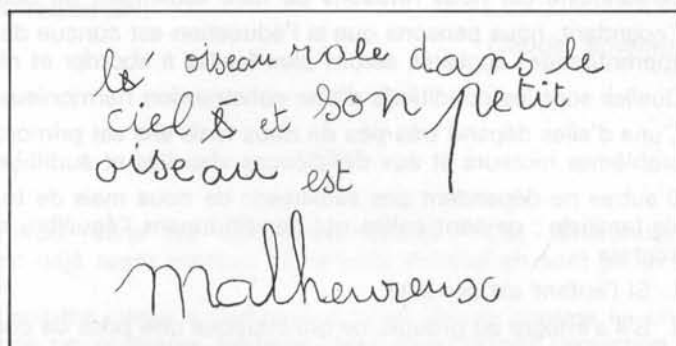 le oiseau vole dans le
cielt et son petit
oiseau est
malheureuse